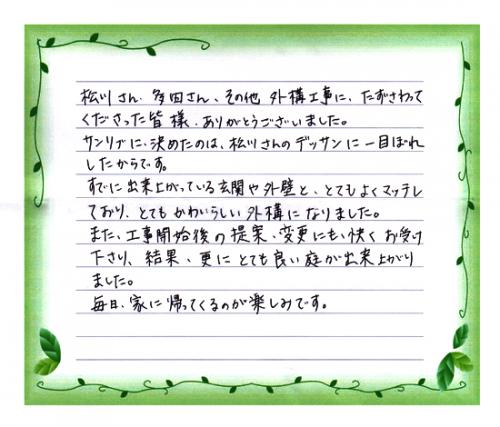 松川さん、多田さん、その他 外構工事に、たずさわって
くださった皆様、ありがとうございました。
サンリブに、決めたのは、松川さんのデッサンに一目ぼれ
したからです。
すでに出来上がっている玄関や外壁と、とてもよくマッチし
ており、とても かわいらしい外構になりました。
また、工事開始後の提案・変更にも、快くお受け
下さり、結果、更にとても良い庭が出来上がり
ました。
毎日、家に帰ってくるのが楽しみです。